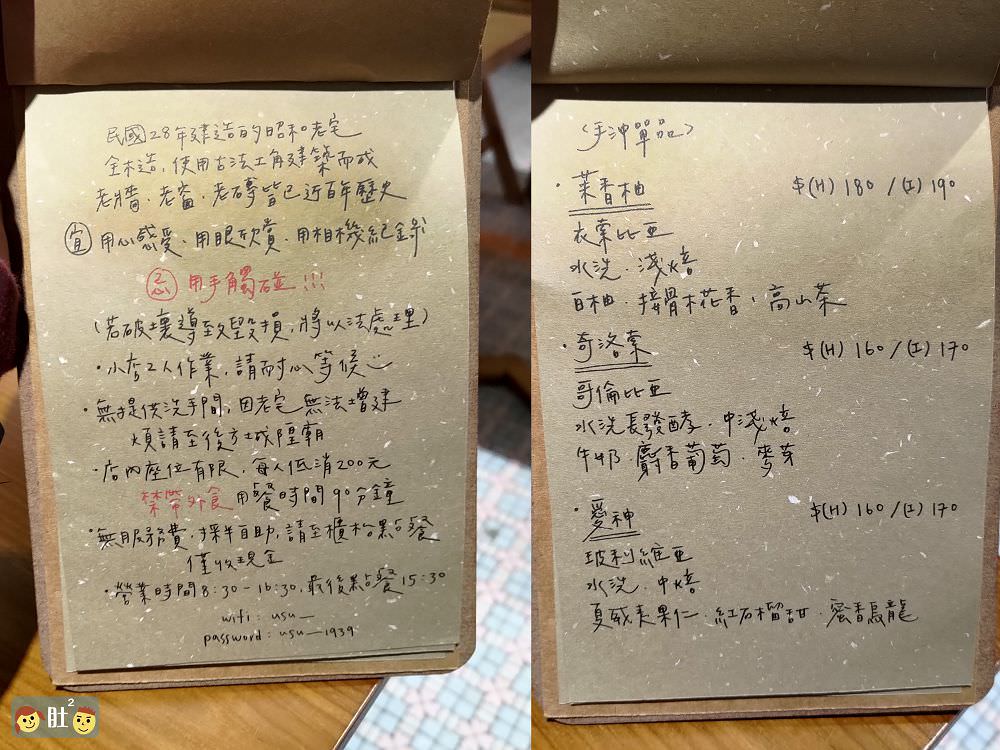 民國28年建造的昭和老宅
全木造，使用古法土角建築而成
老牆、老窗、老磚皆已近百年歷史
宜 用心感受、用眼欣賞、用相機紀錄
忌 用手觸碰!!!
(若破壞導致毀損，將以法處理)
·小店2人作業，請耐心等候
·無提供洗手間，因老宅無法增建
煩請至後方城隍廟
·店內座位有限，每人低消200元
禁帶外食 用餐時間90分鐘
·無服務費，採半自助，請至櫃枱點餐
僅收現金
·營業時間8:30-16:30，最後點餐15:30
wifi: usu_
password: usu_1939
肚2
〈手沖單品〉
· 茉香柚 $(H) 180 / (I) 190
衣索比亞
水洗．淺焙
白柚．接骨木花香，高山茶
· 奇洛索 $(H) 160 / (I) 170
哥倫比亞
水洗長發酵．中淺焙
牛奶．麝香葡萄．麥芽
· 愛神 $(H) 160 / (I) 170
玻利維亞
水洗．中焙
夏威夷果仁．紅石榴甜．蜜香烏龍